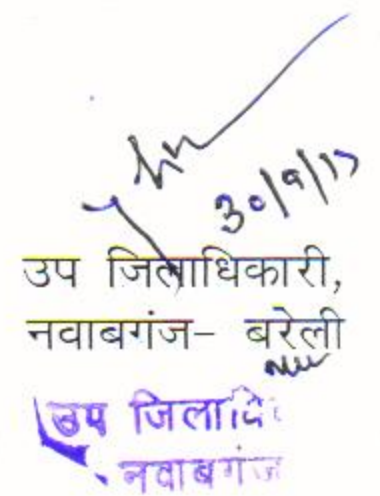 30/9/17
उप जिलाधिकारी,
नवाबगंज- बरेली
उप जिलाधि
नवाबगंज